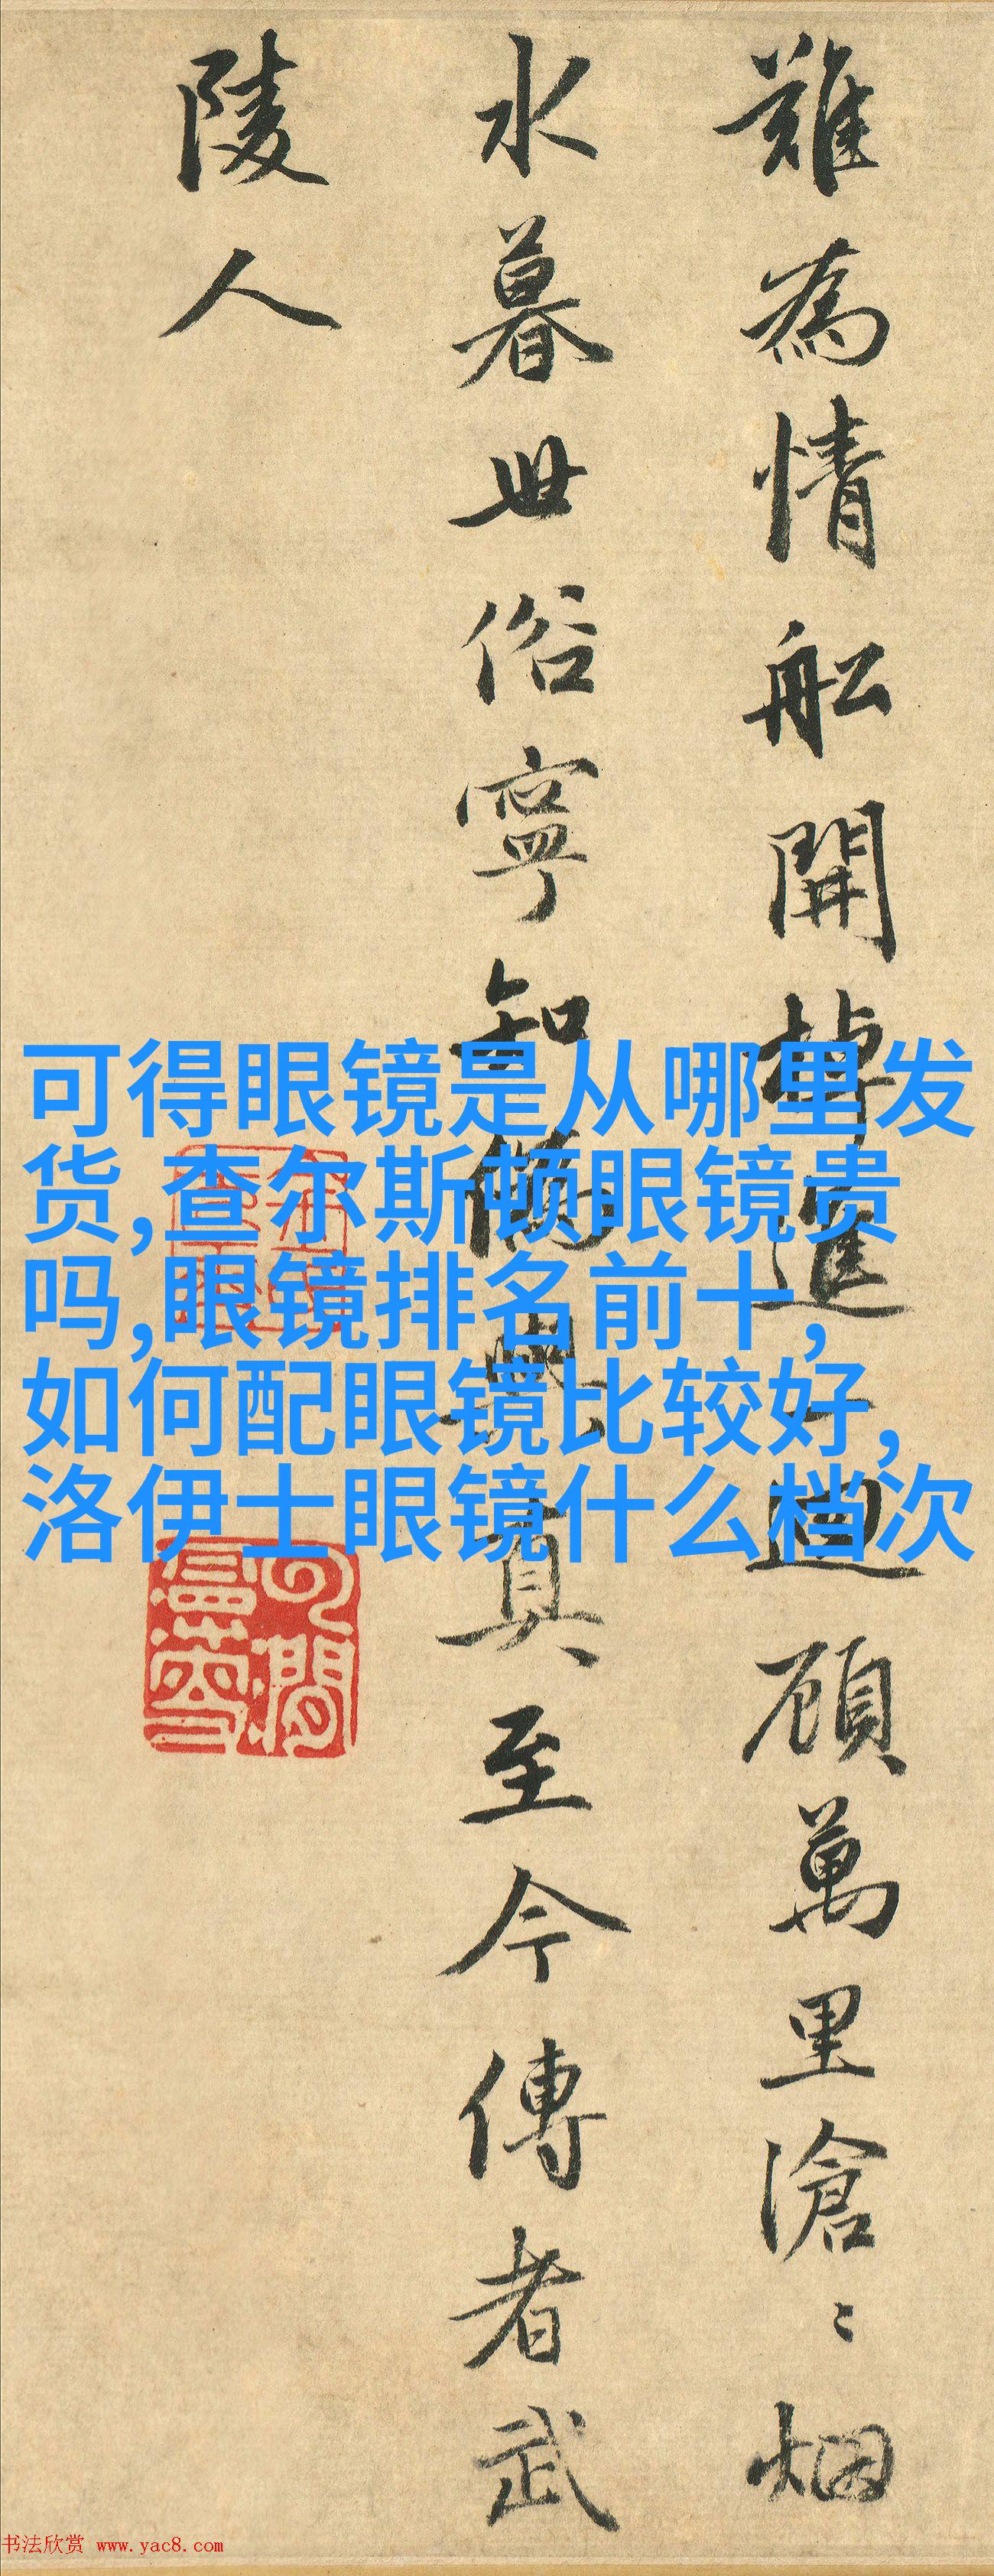 難為情舩開棹進一迴顧萬里滄〻烟
水暮世俗寧知偽與真至今傳者武
陵人
可得眼镜是从哪里发
货,查尔斯顿眼镜贵
吗,眼镜排名前十,
如何配眼镜比较好,
洛伊士眼镜什么档次
书法欣赏 www.yac8.com